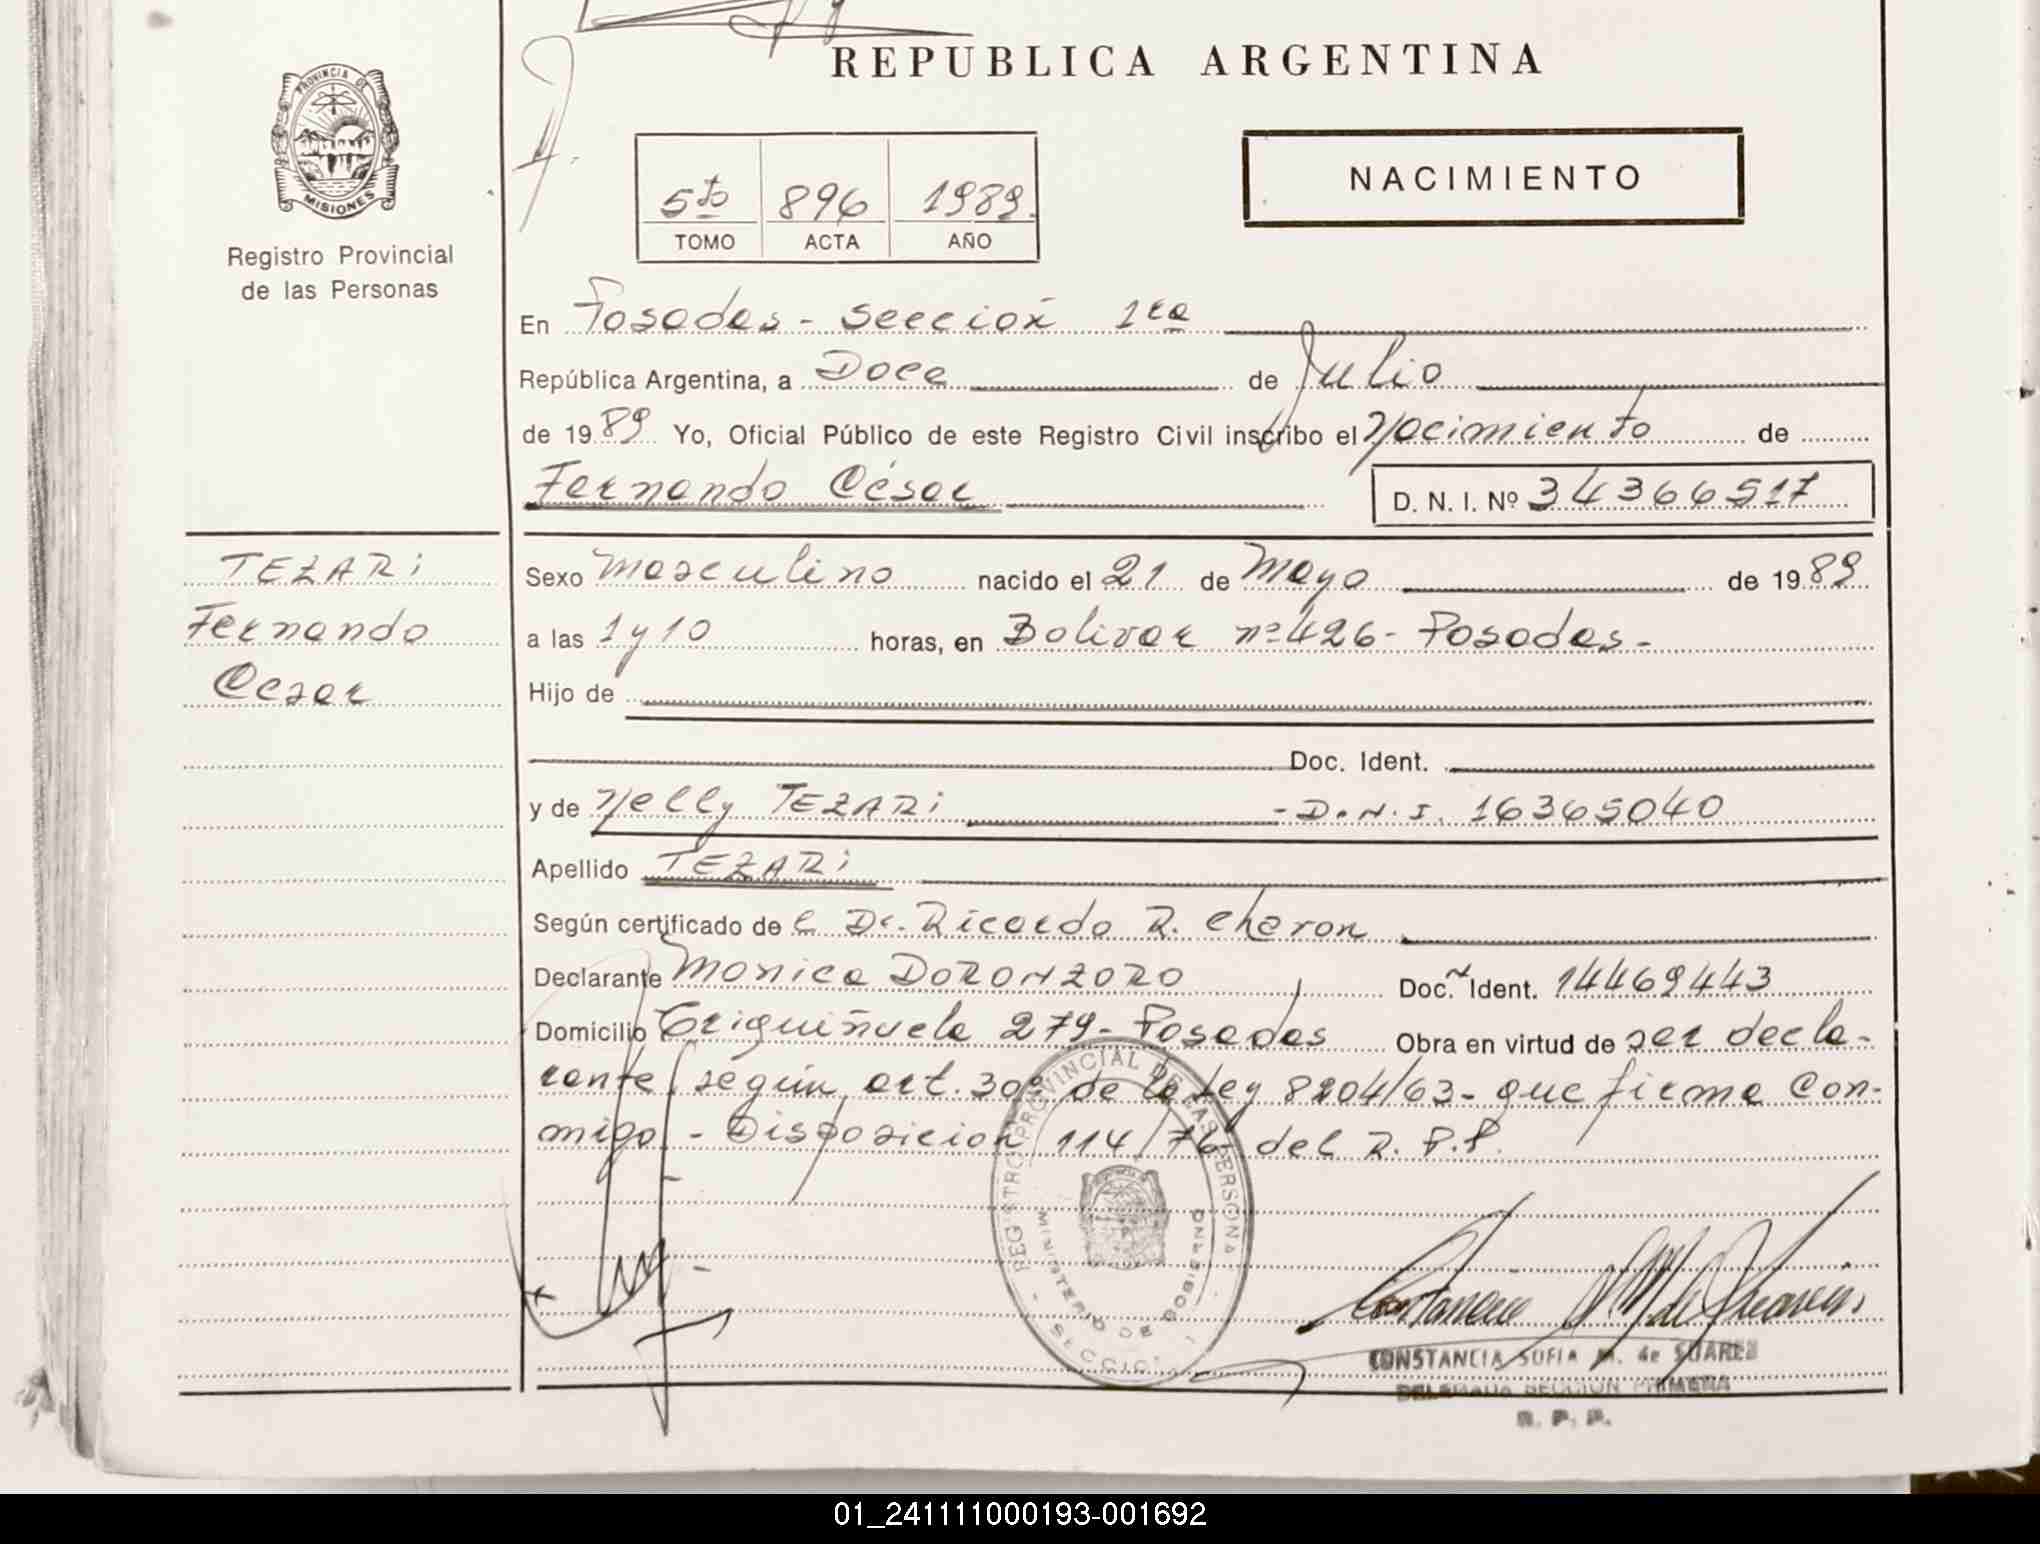 REPUBLICA ARGENTINA
PROVINCIA DE
MISIONES
Registro Provincial
de las Personas
5to 896 1989.
TOMO ACTA AÑO
NACIMIENTO
En Posadas - Sección 1ra
República Argentina, a Doce de Julio
de 1989 Yo, Oficial Público de este Registro Civil inscribo el Nacimiento de
Fernando César D. N. I. Nº 34366517
TEZARi
Fernando
Cesar
Sexo Masculino nacido el 21 de Mayo de 1989
a las 1 y 10 horas, en Bolivar nº 426 - Posadas -
Hijo de
Doc. Ident.
y de Nelly TEZARi - D.N.I. 16365040
Apellido TEZARi
Según certificado del Dr. Ricardo R. Cheron
Declarante Monica DORONZORO Doc. Ident. 14469443
Domicilio Triguiñuela 279 - Posadas Obra en virtud de ser decla-
rante, según art. 30º de la Ley 8204/63 - que firma con-
migo - Disposicion 114/76 del R.P.P.
REGISTRO PROVINCIAL DE LAS PERSONAS
MINISTERIO DE GOBIERNO
CONSTANCIA SOFIA M. de SUAREZ
DELEGADA SECCION PRIMERA
R. P. P.
01_241111000193-001692